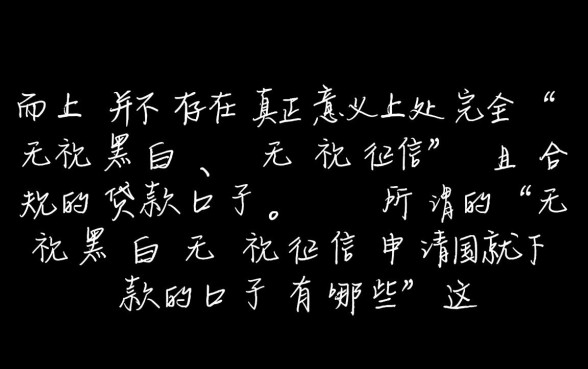 而上 并不存在真正意义上处完全“
无视黑白、 无视征信” 且合
规的贷款口子。 所谓的“无
视黑白无视征信申请国就下
款的口子有哪些”这